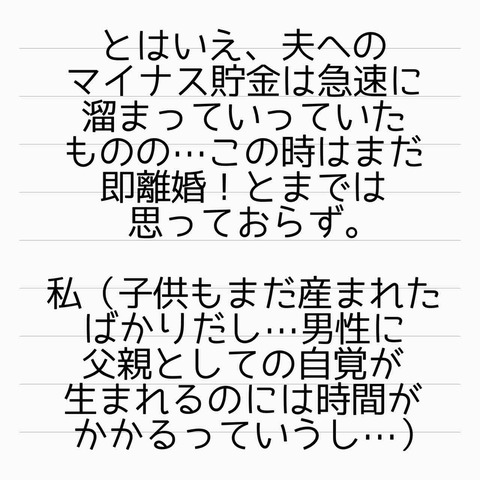 とはいえ、夫への
マイナス貯金は急速に
溜まっていっていた
ものの…この時はまだ
即離婚！とまでは
思っておらず。
私（子供もまだ産まれた
ばかりだし…男性に
父親としての自覚が
生まれるのには時間が
かかるっていうし…）